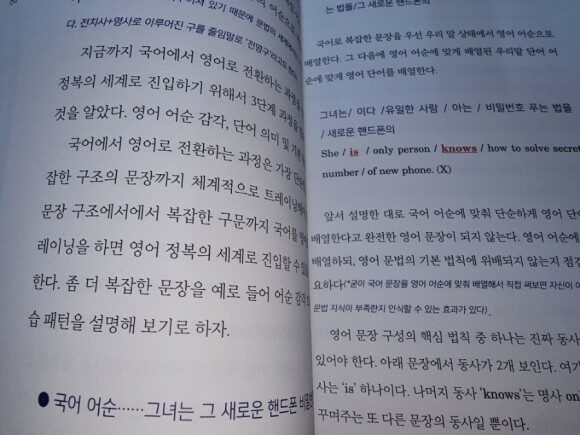 져 있기 때문에 문법의 세계에
다. 전치사+명사로 이루어진 구를 줄임말로 '전명구'라고도
지금까지 국어에서 영어로 전환하는 과정을
정복의 세계로 진입하기 위해서 3단계 과정을
것을 알았다. 영어 어순 감각, 단어 의미 및 기본
국어에서 영어로 전환하는 과정은 가장 단순한
잡한 구조의 문장까지 체계적으로 트레이닝
문장 구조에서에서 복잡한 구문까지 국어를 영어
레이닝을 하면 영어 정복의 세계로 진입할 수 있
한다. 좀 더 복잡한 문장을 예로 들어 어순 감각
습 패턴을 설명해 보기로 하자.
● 국어 어순……그녀는 그 새로운 핸드폰 비밀
는 법을/그 새로운 핸드폰의
국어로 복잡한 문장을 우선 우리 말 상태에서 영어 어순으로
배열한다. 그 다음에 영어 어순에 맞게 배열된 우리말 단어 어
순에 맞게 영어 단어를 배열한다.
그녀는/ 이다 /유일한 사람 / 아는 / 비밀번호 푸는 법을
/ 새로운 핸드폰의
She / is / only person / knows / how to solve secret
number / of new phone. (X)
앞서 설명한 대로 국어 어순에 맞춰 단순하게 영어 단어
배열한다고 완전한 영어 문장이 되지 않는다. 영어 어순에
배열하되, 영어 문법의 기본 법칙에 위배되지 않는지 점검
요하다(*굳이 국어 문장을 영어 어순에 맞춰 배열해서 직접 써보면 자신이 어
문법 지식이 부족한지 인식할 수 있는 효과가 있다).
영어 문장 구성의 핵심 법칙 중 하나는 진짜 동사
있어야 한다. 아래 문장에서 동사가 2개 보인다. 여기
사는 'is' 하나이다. 나머지 동사 'knows'는 명사 on
꾸며주는 또 다른 문장의 동사일 뿐이다.